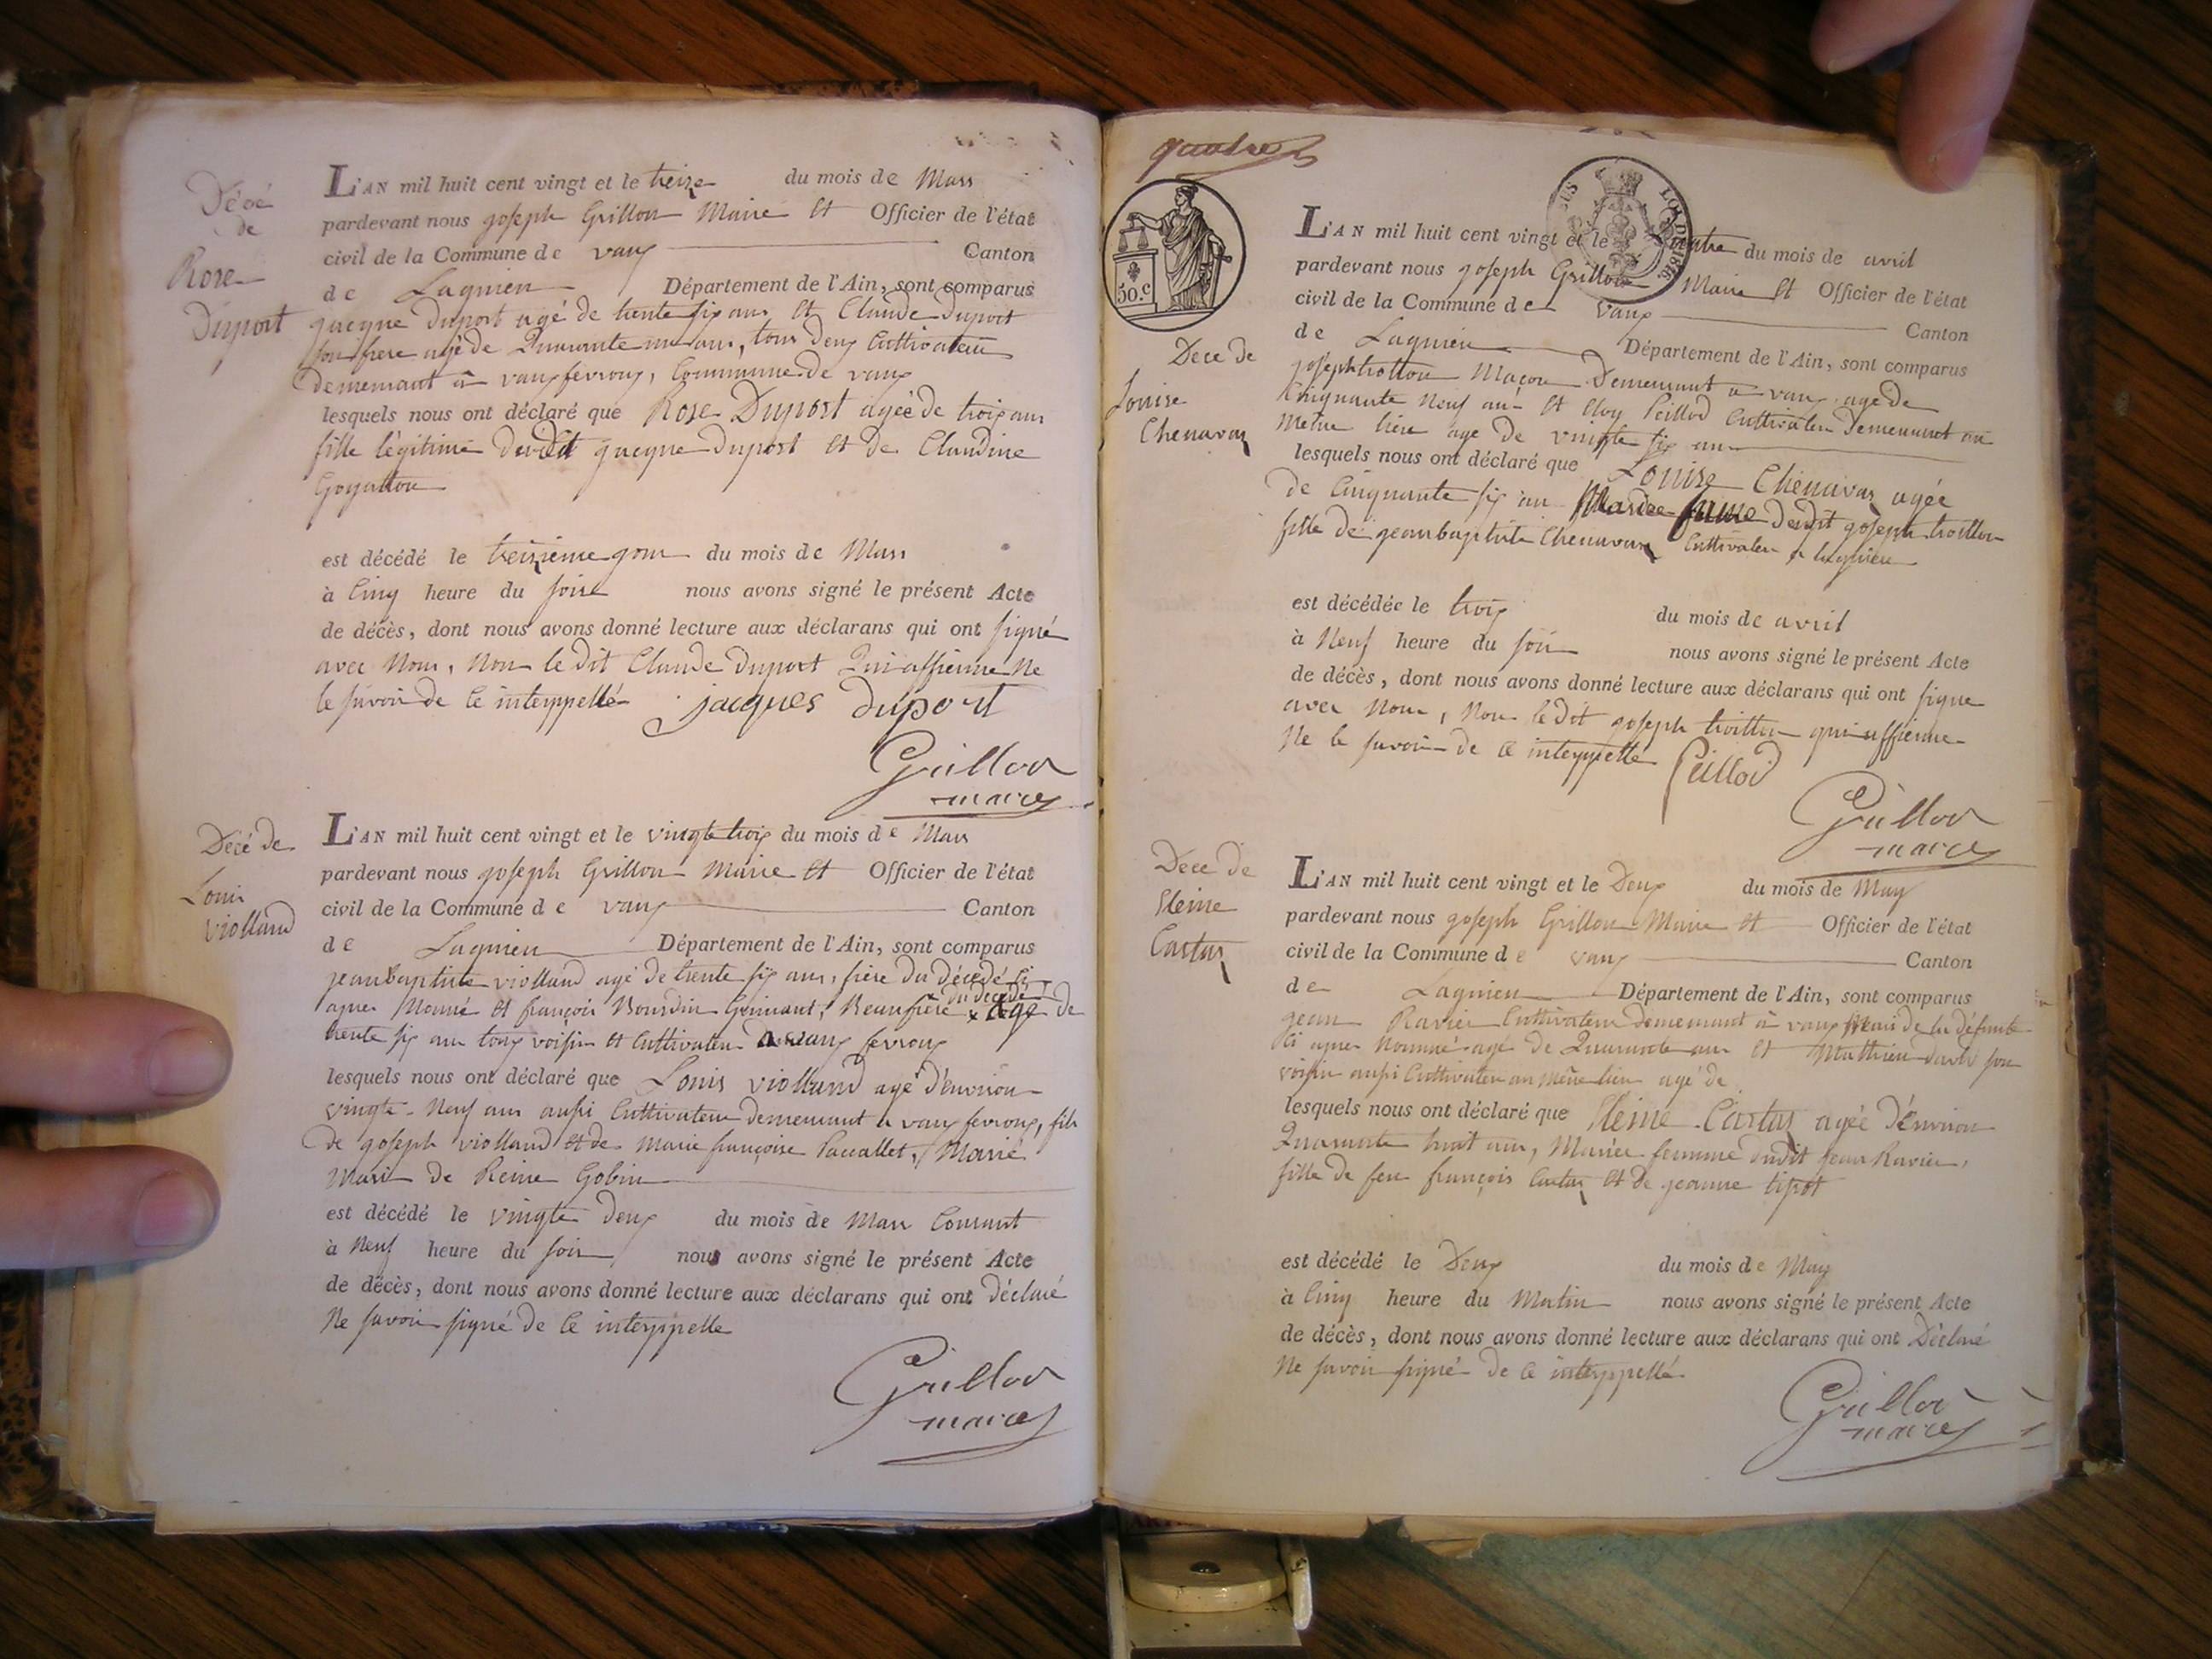 Décé
de
Rose
Duport
L'AN mil huit cent vingt et le treize du mois de Mars
pardevant nous joseph Grillon Maire et Officier de l'état
civil de la Commune de vaux Canton
de Lagnieu Département de l'Ain, sont comparus
jacque Duport agé de trente six ans et Claude Duport
son frere agé de Quarante un ans, tous deux Cultivateur
demeurant à vauxfevroux, Commune de vaux
lesquels nous ont déclaré que Rose Duport agée de trois ans
fille légitime dudit jacque Duport et de Claudine
Goyatton
est décédé le treizieme jour du mois de Mars
à Cinq heure du soire nous avons signé le présent Acte
de décès, dont nous avons donné lecture aux déclarans qui ont signé
avec Nous, Non le Dit Claude Duport Qui affirme Ne
le savoir de ce interppellé jacques duport
Grillon
maire
Décé de
Louis
violland
L'AN mil huit cent vingt et le vingte trois du mois de Mars
pardevant nous joseph Grillon Maire et Officier de l'état
civil de la Commune de vaux Canton
de Lagnieu Département de l'Ain, sont comparus
jean Baptiste violland agé de trente six ans, frère du décédé ci
apres Nommé et françois Bourdin Beaufrère du décédé agé de
trente six ans tous voisin et Cultivateur a vaux fevroux
lesquels nous ont déclaré que Louis violland agé d'environ
vingte-Neuf ans aussi Cultivateur demeurant a vaux fevroux, fils
de joseph violland et de Marie françoise Paccallet, Marié
Mari de Reine Gobin
est décédé le vingte deux du mois de Mars Courant
à Neuf heure du soir nous avons signé le présent Acte
de décès, dont nous avons donné lecture aux déclarans qui ont déclaré
Ne savoir signé de ce interppelle
Grillon
maire
quatre
50.c
LOI DE 1816
Dece de
Louise
Chenavaz
L'AN mil huit cent vingt et le quatre du mois de avril
pardevant nous joseph Grillon Maire et Officier de l'état
civil de la Commune de vaux Canton
de Lagnieu Département de l'Ain, sont comparus
joseph trollion Maçon Demeurant a vaux, age de
Cinquante Neuf ans et Eloy Peillod Cultivateur demeurant au
Meme lieu age de vingte six ans
lesquels nous ont déclaré que Louise Chenavaz agée
de Cinquante six ans Mariée femme dudit joseph trollion
fille de jean baptiste Chenavaz Cultivateur a lagnieu
est décédée le trois du mois de avril
à Neuf heure du soir nous avons signé le présent Acte
de décès, dont nous avons donné lecture aux déclarans qui ont signe
avec Nous, Non le dit joseph trollion qui affirme
Ne le savoir de ce interppelle Peillod
Grillon
maire
Dece de
Reine
Cartaz
L'AN mil huit cent vingt et le Deux du mois de May
pardevant nous joseph Grillon Maire et Officier de l'état
civil de la Commune de vaux Canton
de Lagnieu Département de l'Ain, sont comparus
jean Ravier Cultivateur demeurant à vaux Mari de la défunte
Ci apres Nommé agé de Quarante ans et Mathieu son
voisin aussi Cultivateur au même lieu agé de
lesquels nous ont déclaré que Reine Cartaz agée d'environ
Quarante huit ans, Mariée femme dudit jean Ravier,
fille de feu françois Cartaz et de jeanne tipot
est décédé le Deux du mois de May
à Cinq heure du Matin nous avons signé le présent Acte
de décès, dont nous avons donné lecture aux déclarans qui ont Déclaré
Ne savoir signé de ce interppellé
Grillon
maire